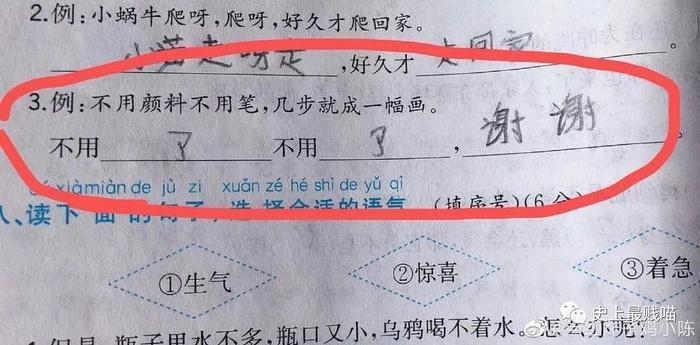 2.例:小蜗牛爬呀,爬呀,好久才爬回家。
小猫走呀走,好久才走回家。
3.例:不用颜料不用笔,几步就成一幅画。
不用了不用了,谢谢。
xiàmiàn de jù zi xuǎn zé hé shì de yǔ qì
八、读下面的句子,选择合适的语气。(填序号)(6分)
①生气 ②惊喜 ③着急
1.但是,瓶子里水不多,瓶口又小,乌鸦喝不着水。怎么办呢?
史上最贱喵